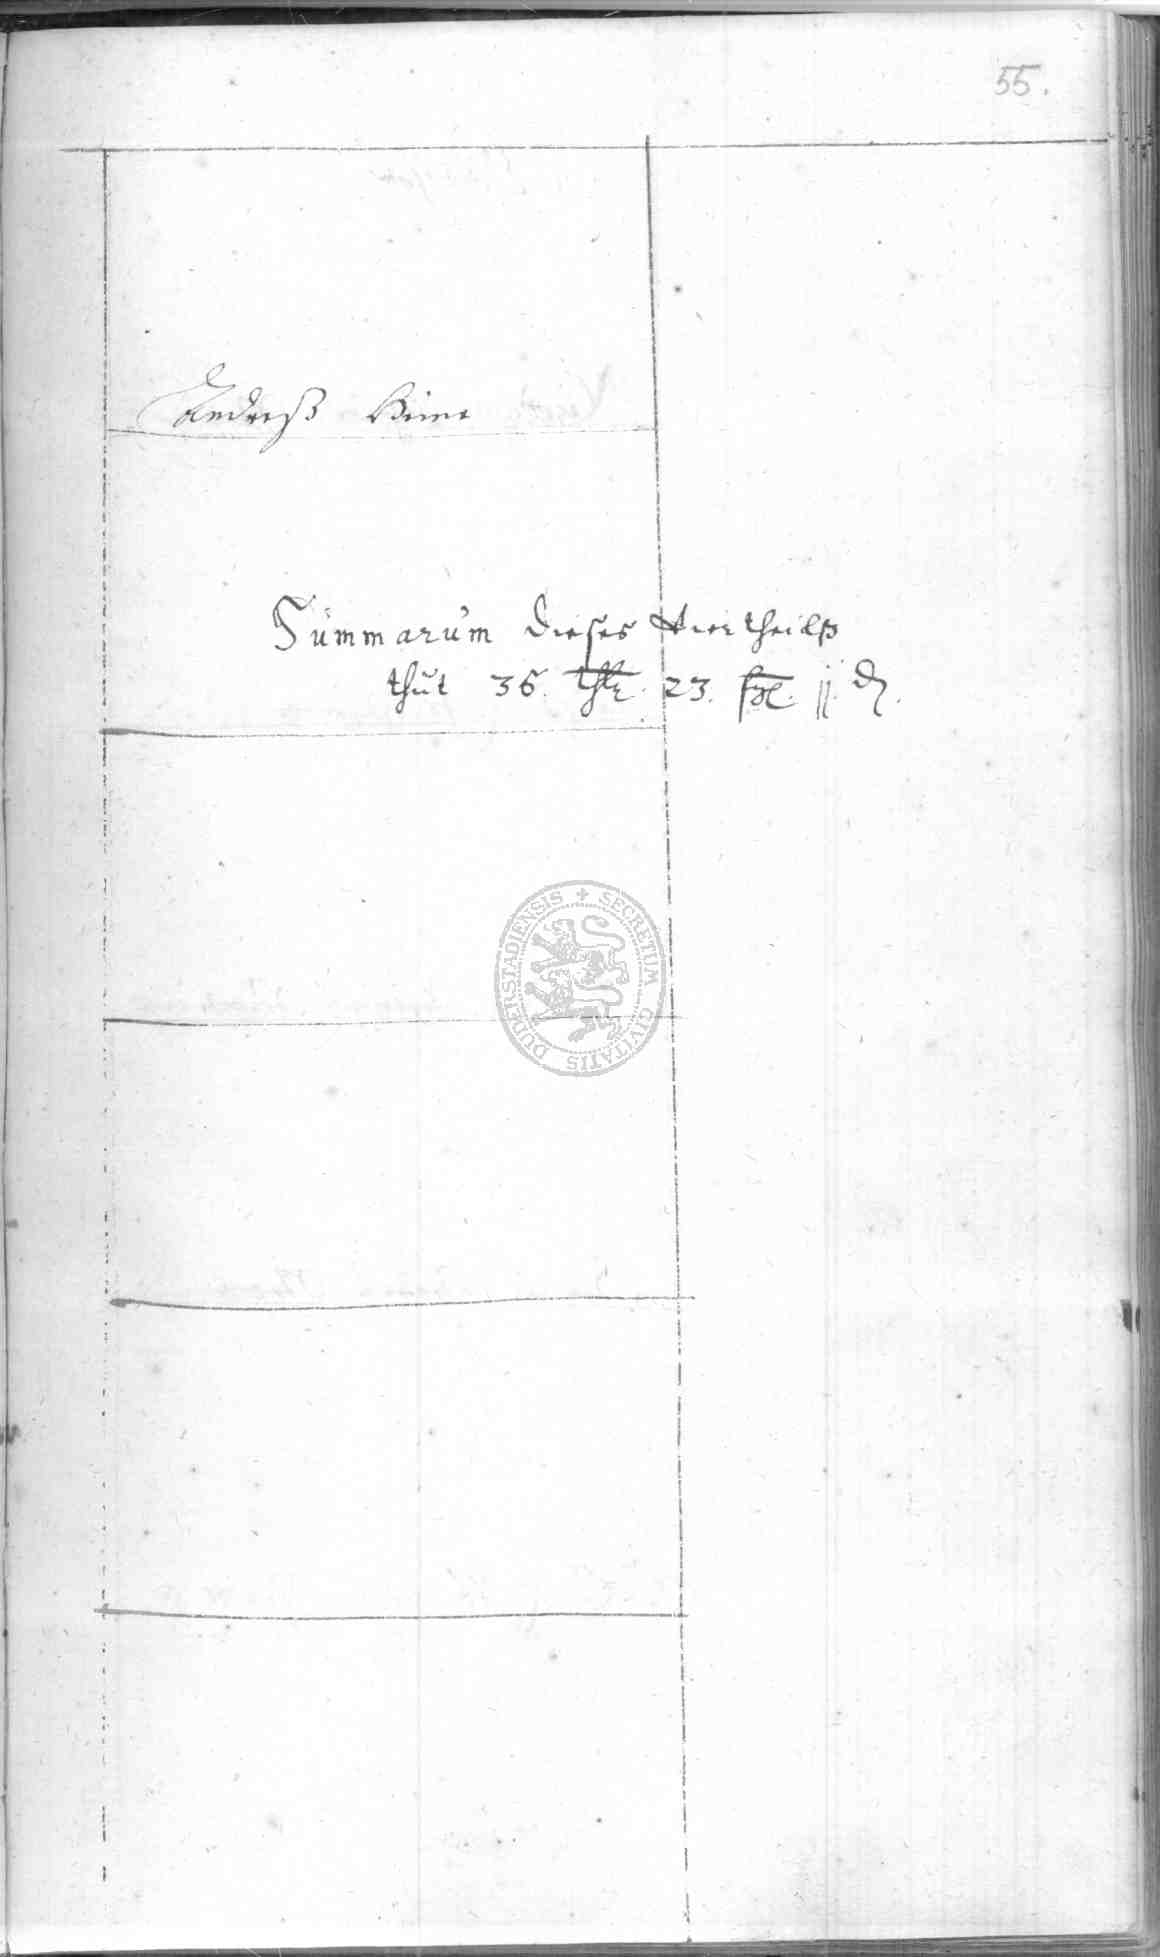 55.
Andreß
Summarum dieses Viertheilß
thut 36. thlr. 23. ßl. jj ₰.
SECRETUM CIVITATIS DUDERSTADIENSIS